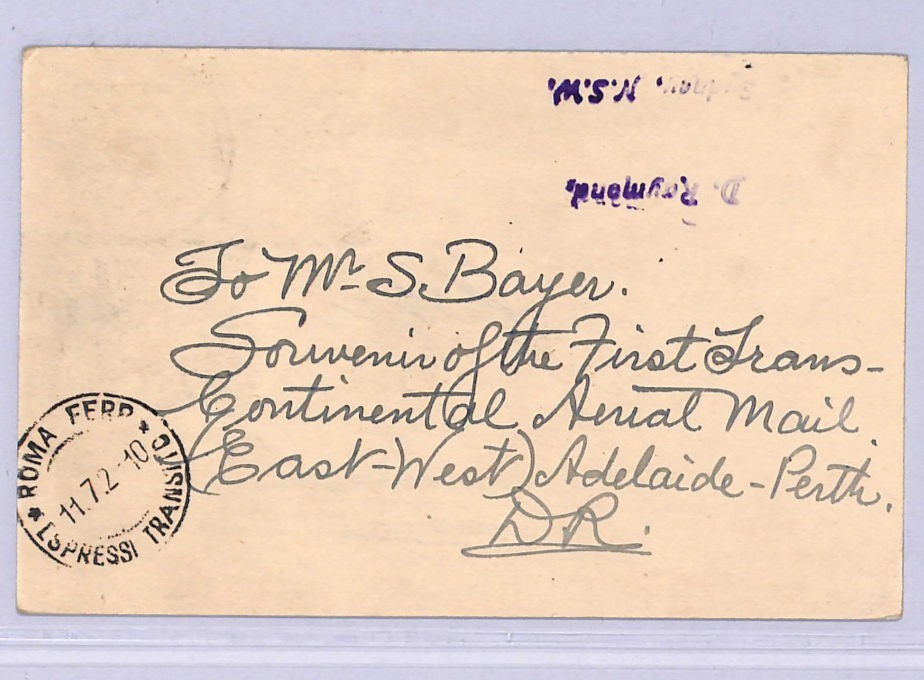 Sydney, N.S.W.
D. Raymond,
To Mr. S. Bayer.
Souvenir of the First Trans-
Continental Aerial Mail
(East-West) Adelaide-Perth.
D.R.
ROMA FERR
ESPRESSI TRANSITO
11.7.2 -10